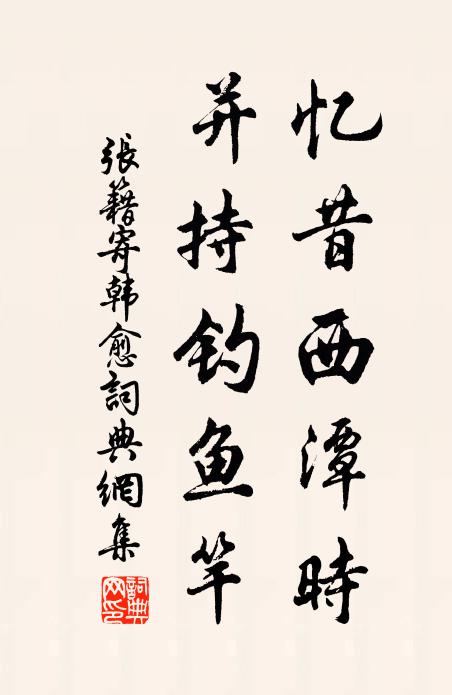 忆昔西潭時
并持钓鱼竿
張籍寄韩愈詞典網集
詞典网印